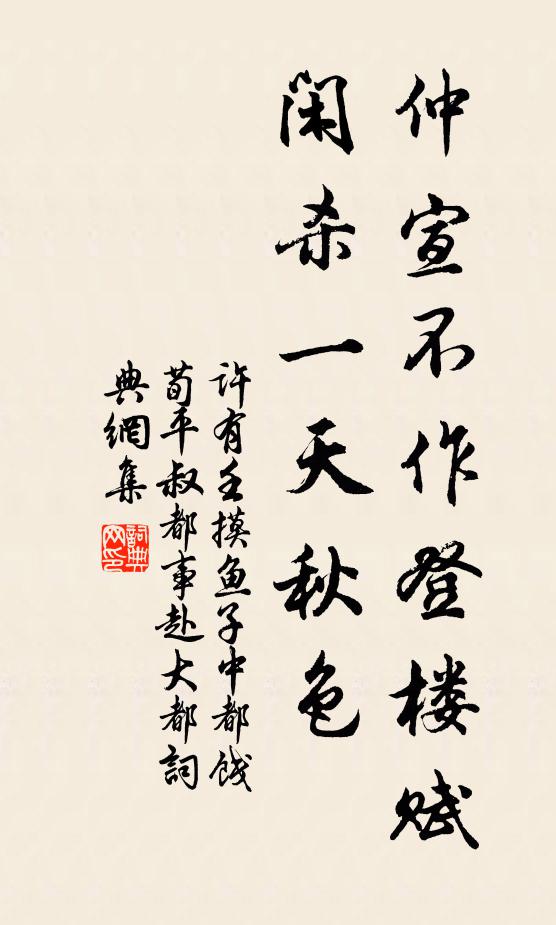 仲宣不作登楼赋
闲杀一天秋色
许有壬摸鱼子中都饯
荀平叔都事赴大都詞
典網集
詞典網印